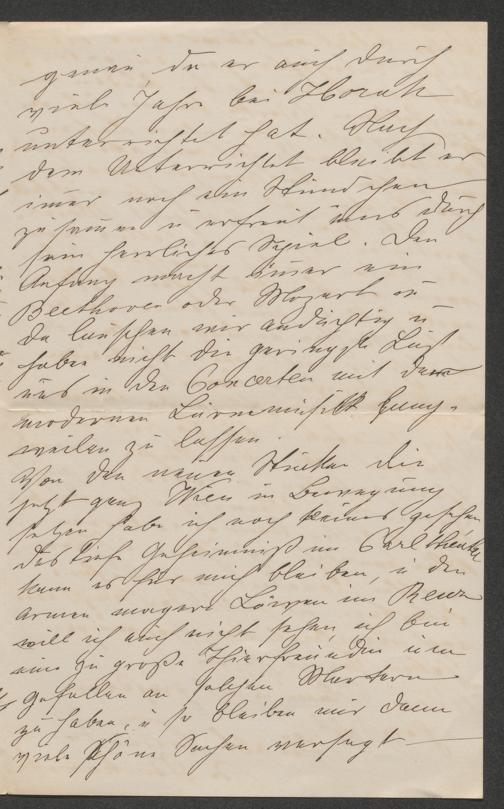 genau, da er auch durch
viele Jahre bei Horak
unterrichtet hat. Nach
dem Unterricht bleibt er
imer noch ein Stündchen
zusamen u erfreut uns durch
sein herrliches Spiel. Den
Anfang macht imer ein
Beethoven oder Mozart u
da lauschen wir andächtig u
haben nicht die geringste Lust
uns in den Concerten mit der
modernen Lärmmusik lang-
weilen zu lassen.
Von den neuen Stücken die
jetzt ganz Wien in Bewegung
setzen habe ich noch keines gesehen
das tiefe Geheimniß im Carltheater
kann es für mich bleiben, u den
armen magere Löwen im Renz
will ich auch nicht sehen, ich bin
eine zu große Thierfreundin um
gefallen an solchen Martern
zu haben, u so bleiben mir denn
viele schöne Sachen versagt